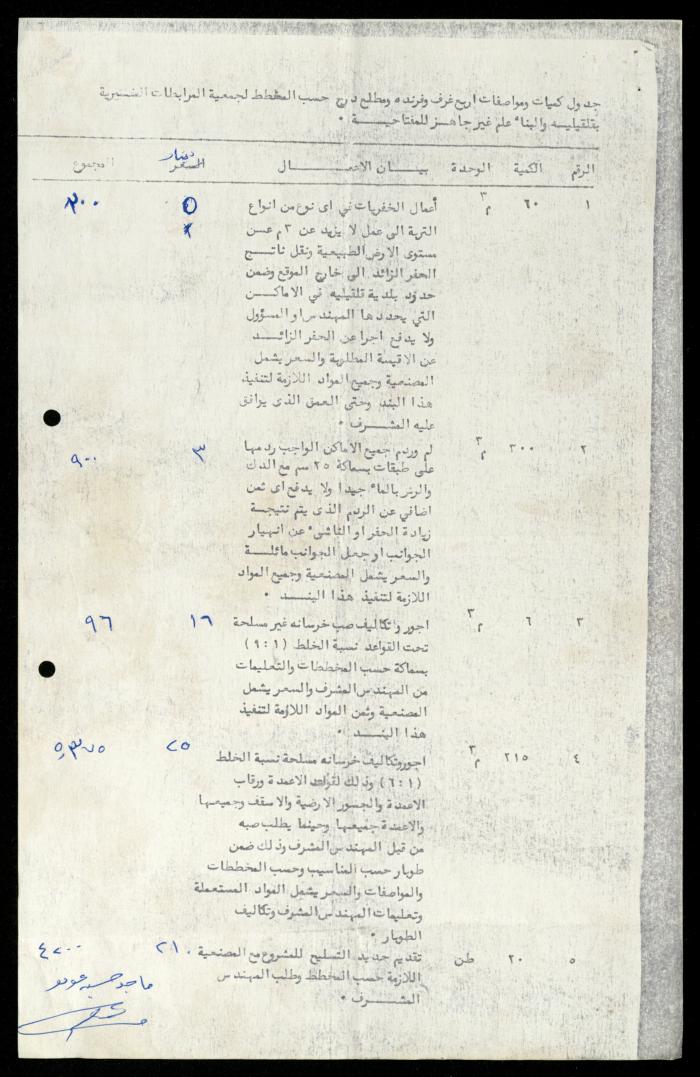 جدول كميات ومواصفات اربع غرف وفرنده ومطلع درج حسب المخطط لجمعية المرابطات الخيرية
بقلقيليه والبناء علم غير جاهز للمفتاحيـــة ٠
الرقم الكمية الوحدة بيـــان الاعمـــال السعر دينار المجموع
١ ٦٠ م٣ أعمال الحفريات في اى نوع من انواع ٣٠٠
التربة الى عمل لا يزيد عن ٣م عـن
مستوى الارض الطبيعية ونقل ناتـج
الحفر الزائد الى خارج الموقع وضمن
حدود بلدية قلقيليه في الاماكـــن
التي يحددها المهندس او المسؤول
ولا يدفع اجرا عن الحفر الزائـــد
عن الاقيسة المطلوبة والسعر يشمل
المصنعية وجميع المواد اللازمة لتنفيذ
هذا البند وحتى العمق الذى يوافق
عليه المشـــرف ٠
٢ ٣٠٠ م٣ لم وردم جميع الاماكن الواجب ردمها ٣ ٩٠٠
على طبقات بسماكة ٢٥ سم مع الدك
والرش بالماء جيدا ولا يدفع اى ثمن
اضافي عن الردم الذى يتم نتيجـة
زيادة الحفر او الناشىء عن انهيار
الجوانب او جعل الجوانب مائلـــة
والسعر يشمل المصنعية وجميع المواد
اللازمة لتنفيذ هذا البنـــد ٠
٣ ٦ م٣ اجور وتكاليف صب خرسانه غير مسلحة ١٦ ٩٦
تحت القواعد نسبة الخلط (١:٩)
بسماكة حسب المخططات والتعليمات
من المهندس المشرف والسعر يشمل
المصنعية وثمن المواد اللازمة لتنفيذ
هذا البنـــد ٠
٤ ٢١٥ م٣ اجور وتكاليف خرسانه مسلحة نسبة الخلط ٢٥ ٥,٣٧٥
(١:٦) وذلك لقواعد الاعمدة ورقاب
الاعمدة والجسور الارضية والاسقف وجميعها
والاعمدة جميعها وحيثما يطلب صبه
من قبل المهندس المشرف وذلك ضمن
طوبار حسب المناسيب وحسب المخططات
والمواصفات والسعر يشمل المواد المستعملة
وتعليمات المهندس المشرف وتكاليف
الطوبار ٠
٥ ٢٠ طن تقديم حديد التسليح للمشروع مع المصنعية ٢١٠ ٤٢٠٠
اللازمة حسب المخطط وطلب المهندس
المشـــرف ٠
ماجد